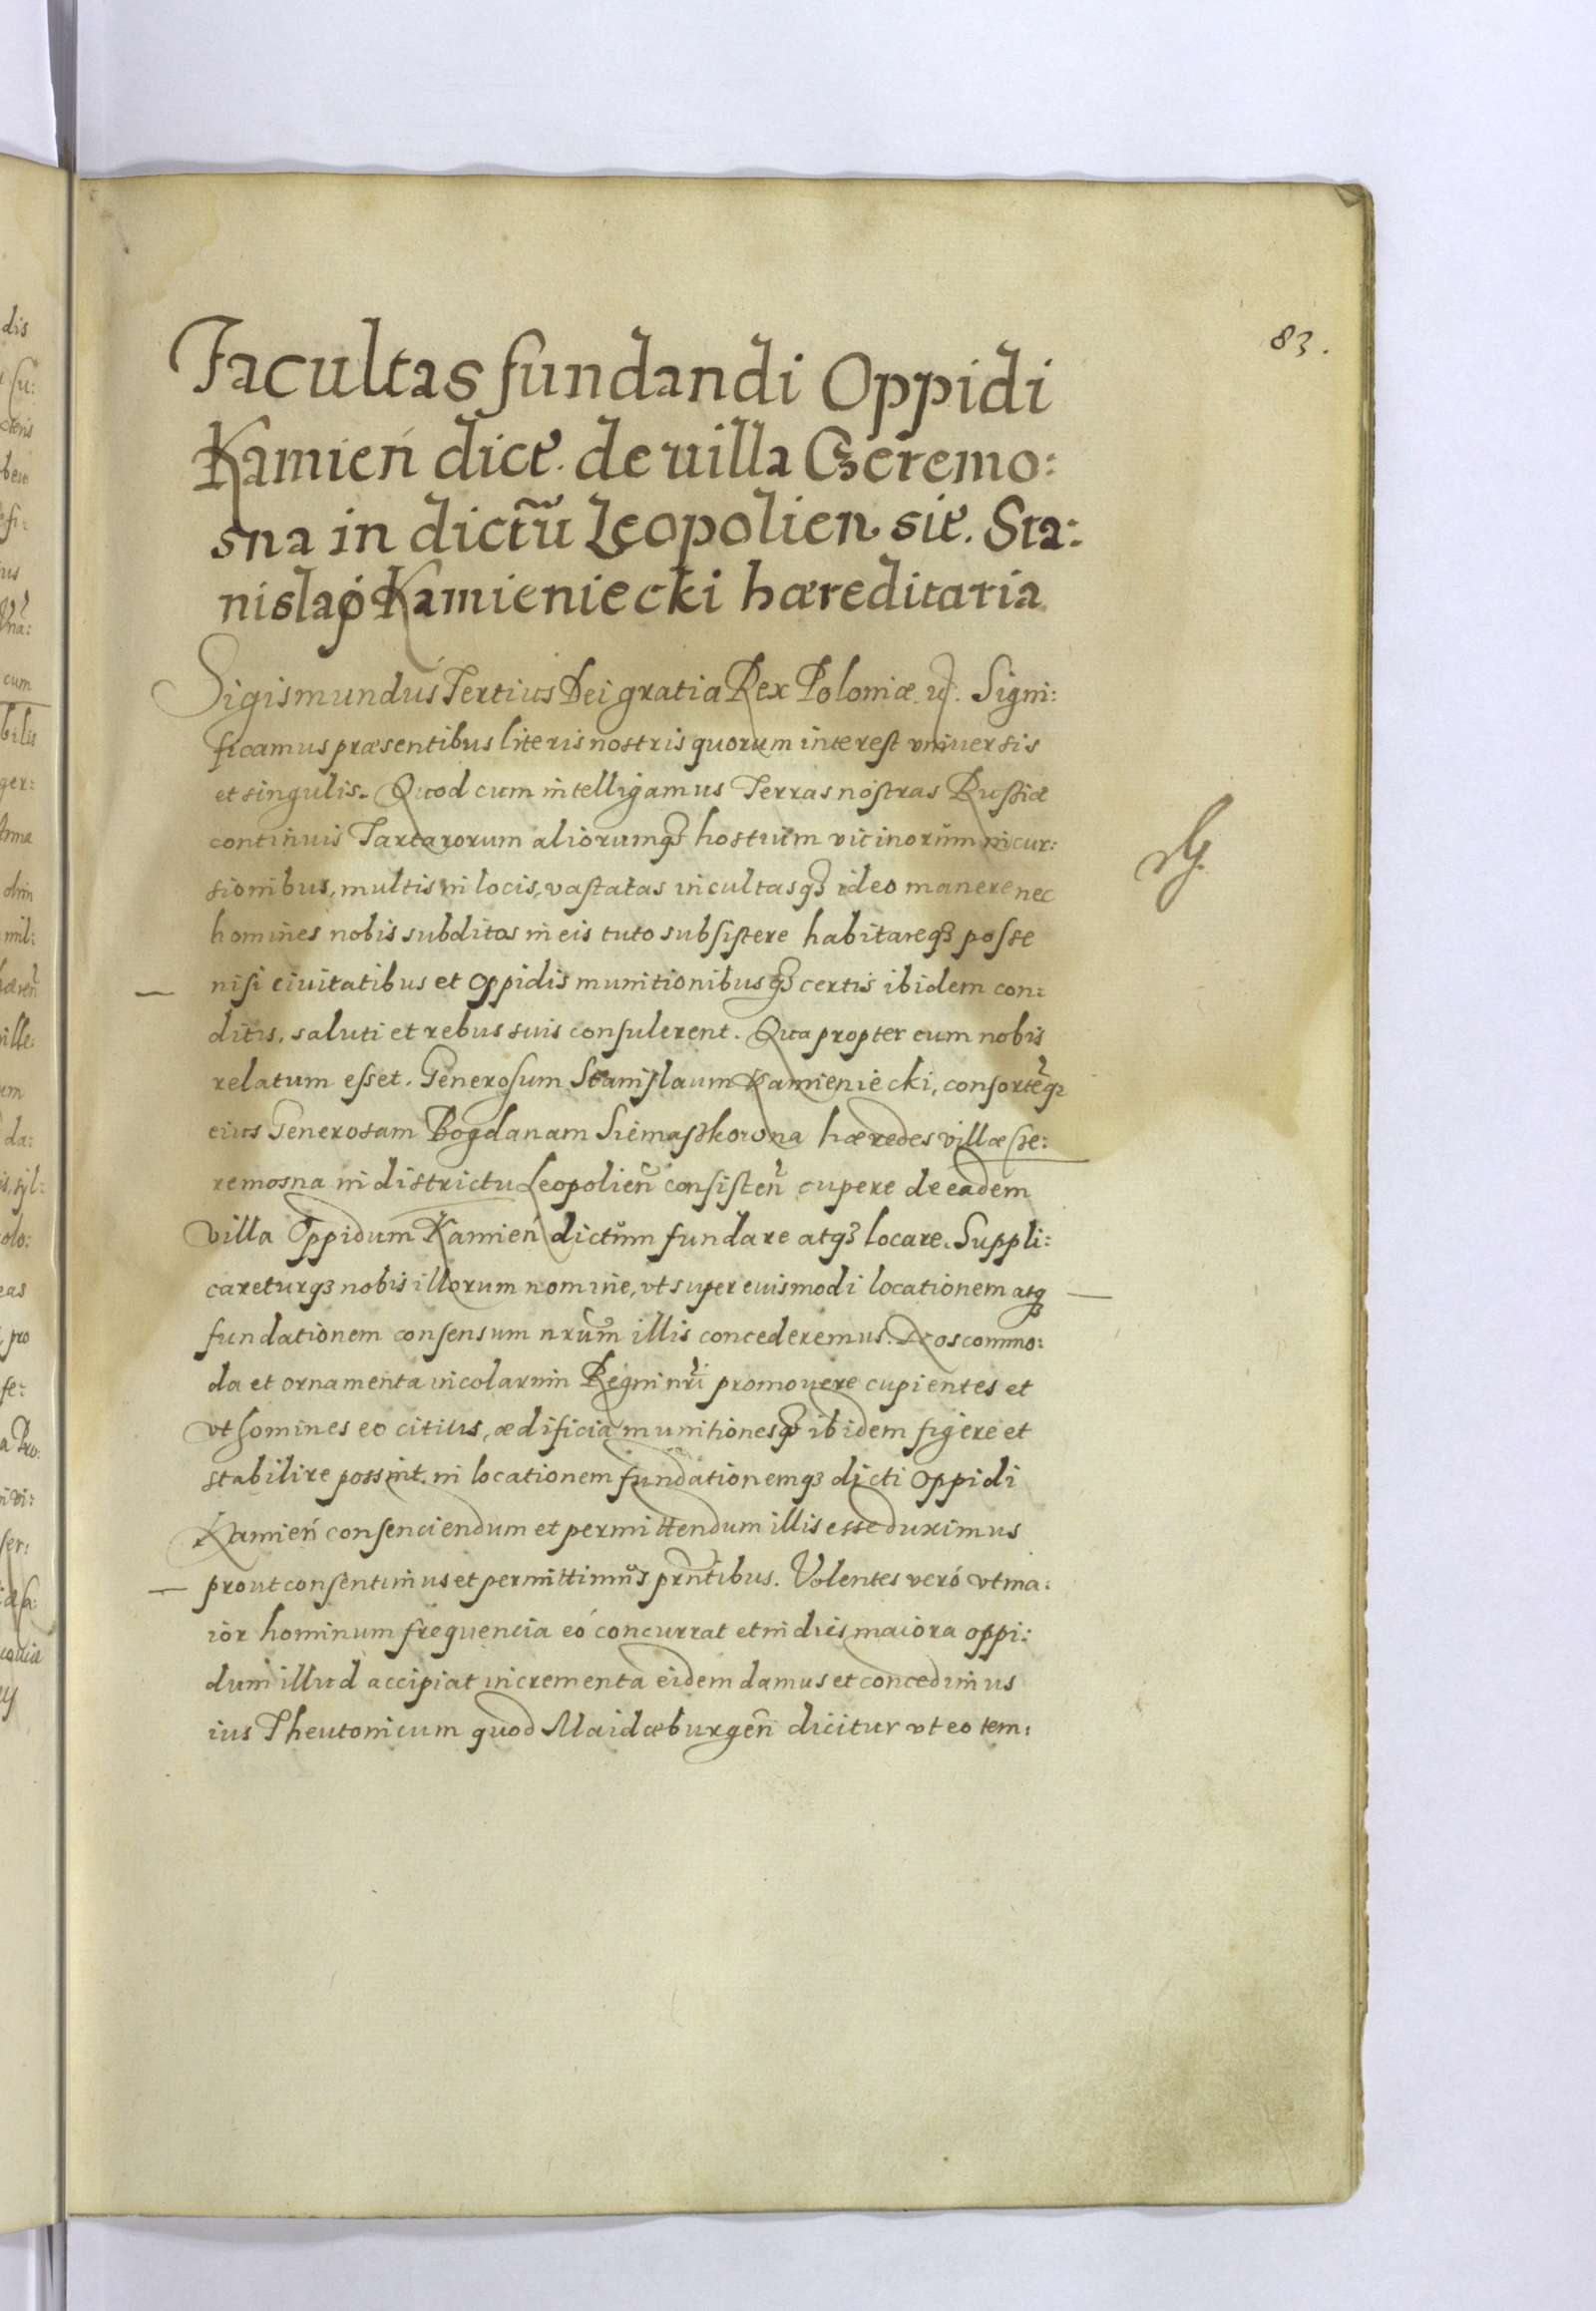 83.
Facultas fundandi Oppidi
Kamień dict. de villa Czeremo:
sna in dictũ Leopolien sit. Sta:
nislao Kamieniecki hæreditaria
Sigismundus Tertius Dei gratia Rex Poloniæ. Signi:
ficamus præsentibus literis nostris quorum interest vniuersis
et singulis. Quod cum intelligamus Terras nostras Russiæ
continuis Tartarorum aliorumq3 hostium vicinorum incur:
sionibus, multis in locis, vastatas incultasq3 ideo manere nec
homines nobis subditos in eis tuto subsistere habitareq3 posse
nisi ciuitatibus et oppidis munitionibusq3 certis ibidem con:
ditis, saluti et rebus suis consulerent. Quapropter cum nobis
relatum esset. Generosum Stanislaum Kamieniecki, consortẽq3
eius Generosam Bogdanam Siemaszkowna hæredes villæ Cze:
remosna in districtu Leopolieñ consisteñ cupere de eadem
villa Oppidum Kamień dictum fundare atq3 locare. Suppli:
careturq3 nobis illorum nomine, vt super euismodi locationem atq3
fundationem consensum nrũm illis concederemus. Nos commo:
da et ornamenta incolarum Regni nr̃i promouere cupientes et
vt homines eo citius, ædificia munitionesq3 ibidem figere et
stabilire possint. in locationem fundationemq3 dicti Oppidi
Kamień consenciendum et permittendum illis esse duximus
prout consentimus et permittimus prñtibus. Volentes veró vt ma:
ior hominum frequencia eó concurrat et in dies maiora oppi:
dum illud accipiat incrementa eidem damus et concedimus
ius Theutonicum quod Maidæburgeñ dicitur vt eo tem: